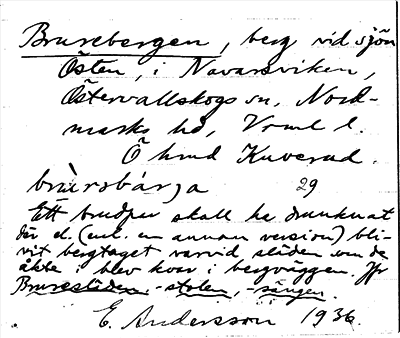 Brurebergen, berg vid sjön
Östen, i Navarsviken,
Östervallskogs sn, Nord-
marks hd, Vrml l.
Ö hmd Kuverud.
brùrsbár̥ja 29
Ett brudpar skall ha drunknat
där el. (enl. en annan version) bli-
vit bergtaget varvid släden som de
åkte i blev kvar i bergväggen. Jfr
Bruresläden, -stolen, -sängen.
E. Andersson 1936.